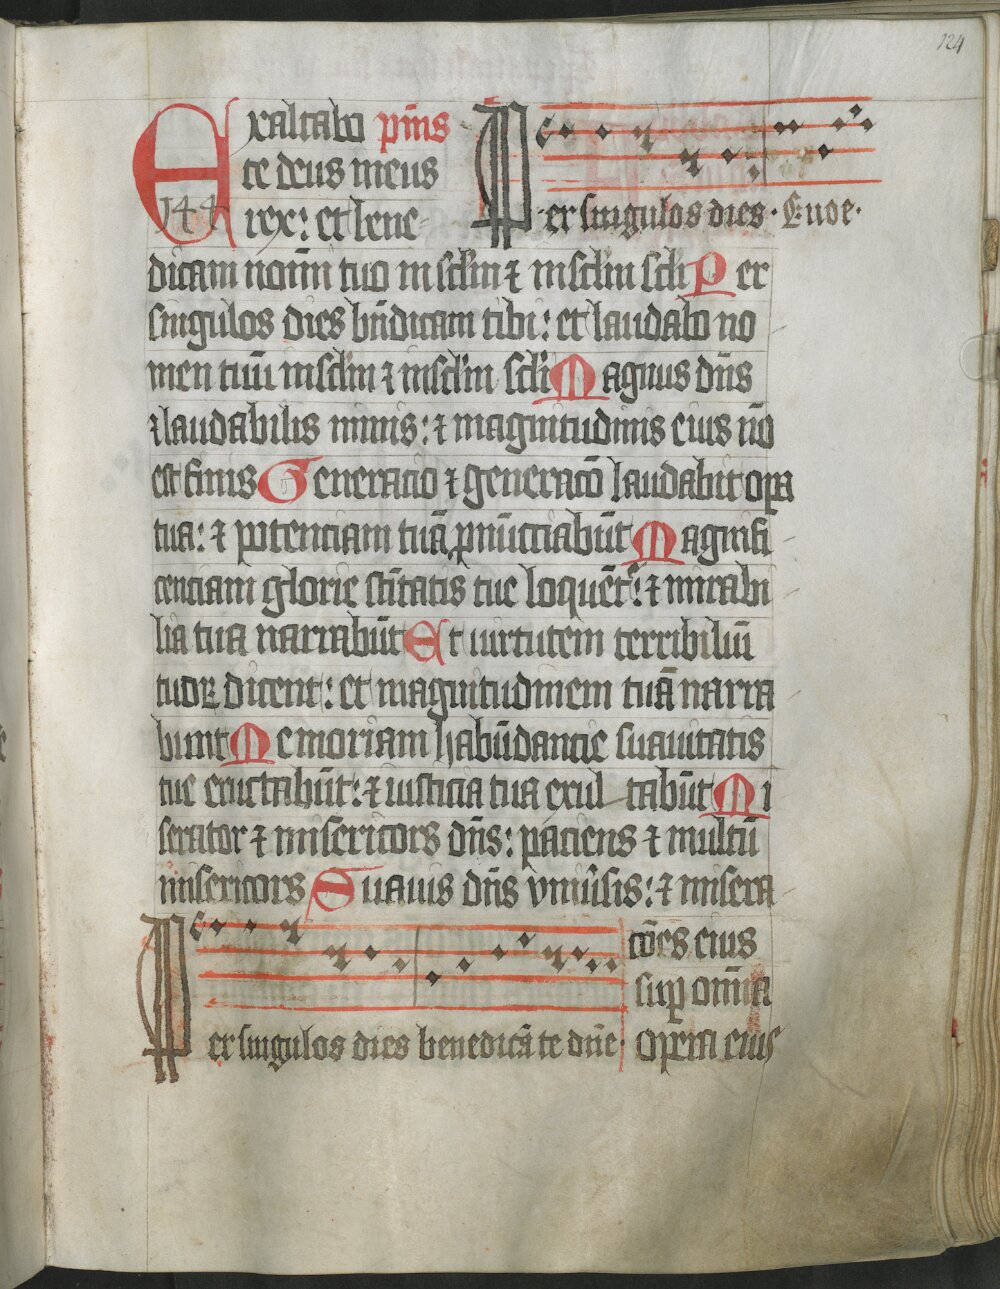 124
Exaltabo pm̄s
te deus meus
144 rex: et bene
Per singulos dies. Euoe.
dicam noīni tuo in sclm̄ ⁊ in sclm̄ scli Per
singulos dies bn̄dicam tibi: et laudabo no
men tuū in sclm̄ ⁊ in sclm̄ scli Magnus dn̄s
⁊ laudabilis nimis: ⁊ magnitudinis eius nō
est finis Generatio ⁊ generacō laudabit opa
tua: ⁊ potenciam tuā pnūcciabūt Magnifi
cenciam glorie scītatis tue loquēt᷑: ⁊ mirabi
lia tua narrabūt Et uirtutem terribiliū
tuoꝝ dicent: et magnitudinem tuā narra
bunt Memoriam habūdancie suauitatis
tue eructabūt: ⁊ iusticia tua exul tabūt Mi
serator ⁊ misericors dn̄s: paciens ⁊ multū
misericors Suauis dn̄s vniūsis: ⁊ misera
cōes eius
sup̄ om̄ia
opera eius
Per singulos dies benedicā te dn̄e.